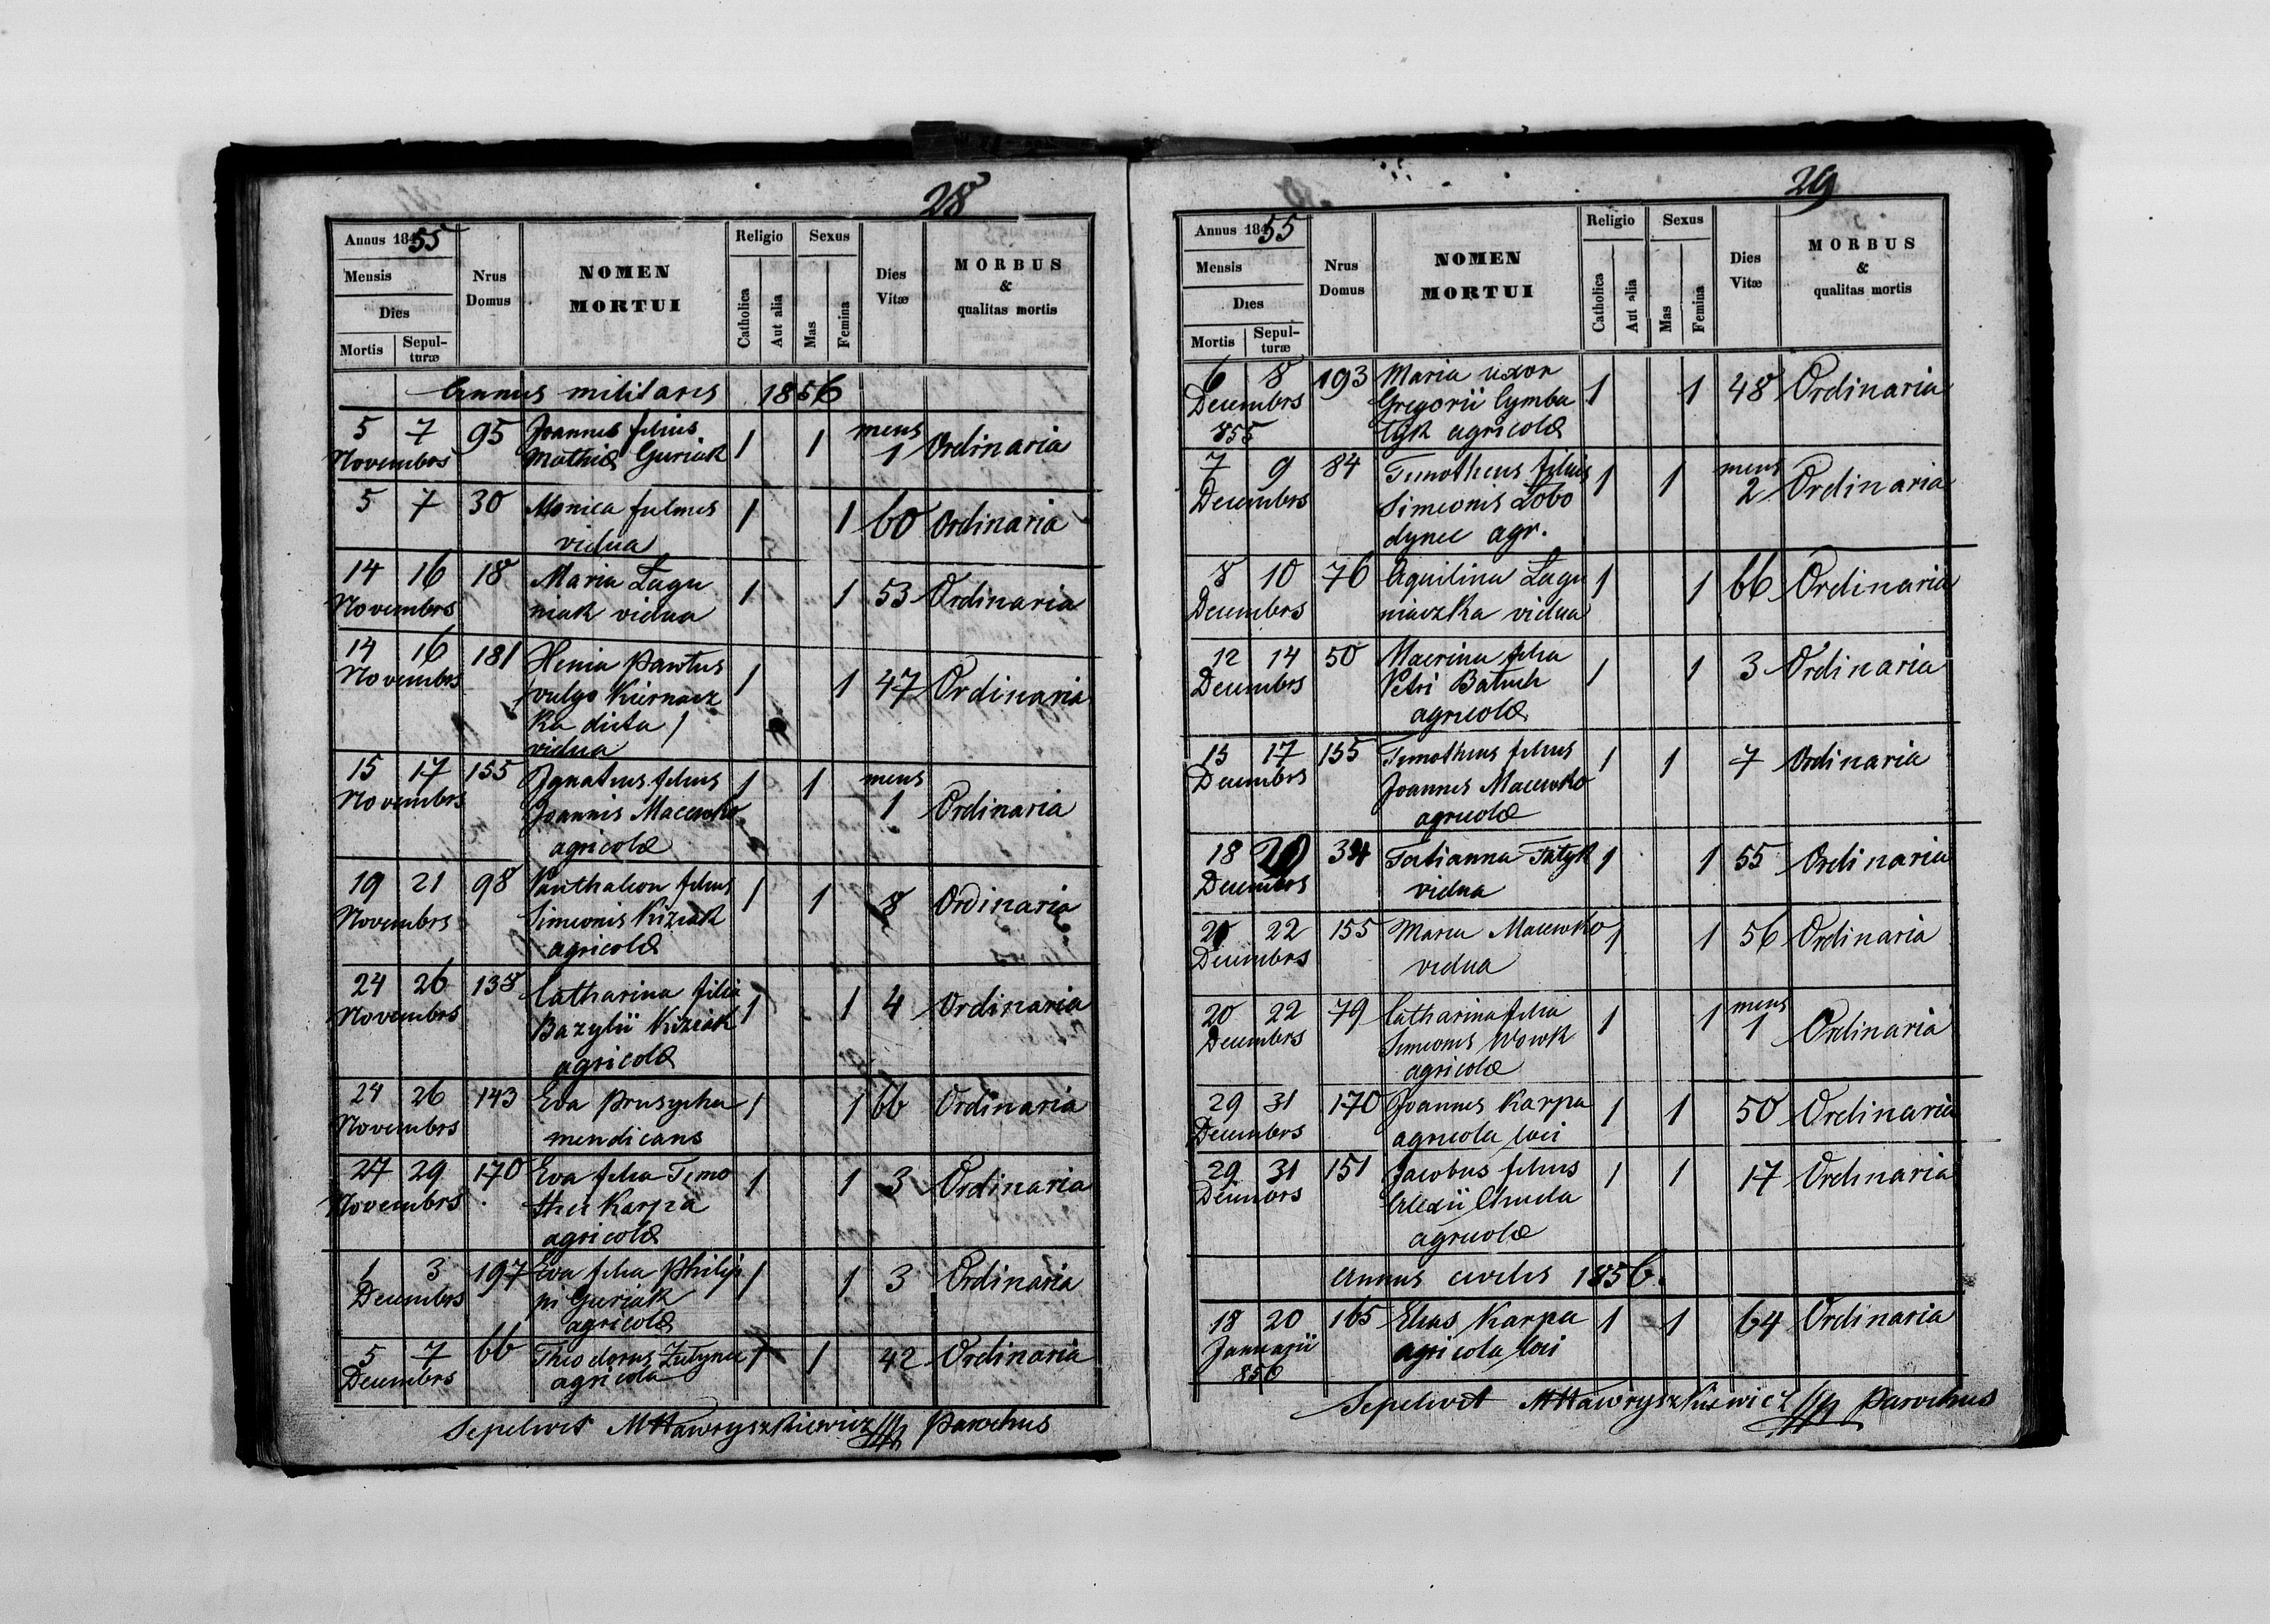 28
Annus 1855
Mensis
Dies
Mortis
Sepulturæ
Nrus Domus
NOMEN MORTUI
Religio
Catholica
Aut alia
Sexus
Mas
Femina
Dies Vitæ
MORBUS & qualitas mortis
Annus militaris 1856
5 7 95 Joannes filius 1 1 mens 1 Ordinaria
Novembrs Mathiæ Guriak
5 7 30 Monica 1 1 60 Ordinaria
vidua
14 16 18 Maria Łagu 1 1 53 Ordinaria
Novembrs niak vidua
14 16 181 Henia Pawtus 1 1 47 Ordinaria
Novembrs /vulgo Kiernacz
ka dicta/
vidua
15 17 155 Ignatius filius 1 1 mens 1 Ordinaria
Novembrs Joannis Macewko
agricolæ
19 21 98 Panthaleon filius 1 1 8 Ordinaria
Novembrs Simeonis Kiziak
agricolæ
24 26 138 Catharina filia 1 1 4 Ordinaria
Novembrs Bazylii Kiziak
agricolæ
24 26 143 Eva Prusycka 1 1 66 Ordinaria
Novembrs mendicans
27 29 170 Eva filia Timo 1 1 3 Ordinaria
Novembrs thei Karpa
agricolæ
1 3 197 Eva filia Philip 1 1 3 Ordinaria
Decembrs pi Guriak
agricolæ
5 7 66 Theodorus 1 1 42 Ordinaria
Decembrs agricola
Sepelivit MHawryszkiewicz Parochus
29
Annus 1855
Mensis
Dies
Mortis
Sepulturæ
Nrus Domus
NOMEN MORTUI
Religio
Catholica
Aut alia
Sexus
Mas
Femina
Dies Vitæ
MORBUS & qualitas mortis
6 8 193 Maria uxor 1 1 48 Ordinaria
Decembrs Gregorii Cymba
855 agricolæ
7 9 84 Timotheus filius 1 1 mens 2 Ordinaria
Decembrs Simeonis Łobo
dynec agr.
8 10 76 Aquilina Łagu 1 1 66 Ordinaria
Decembrs niaczka vidua
12 14 50 Macrina filia 1 1 3 Ordinaria
Decembrs Petri Batuch
agricolæ
15 17 155 Timotheus filius 1 1 7 Ordinaria
Decembrs Joannis Macewko
agricolæ
18 20 34 Tatianna Fityk 1 1 55 Ordinaria
Decembrs vidua
20 22 155 Maria Macewko 1 1 56 Ordinaria
Decembrs vidua
20 22 79 Catharina filia 1 1 mens 1 Ordinaria
Decembrs Simeonis Wowk
agricolæ
29 31 170 Joannes Karpa 1 1 50 Ordinaria
Decembrs agricola loci
29 31 151 Jacobus filius 1 1 17 Ordinaria
Decembrs Alexii Chuda
agricolæ
Annus civilis 1856.
18 20 165 Elias Karpa 1 1 64 Ordinaria
Januarii agricola loci
856
Sepelivit MHawryszkiewicz Parochus